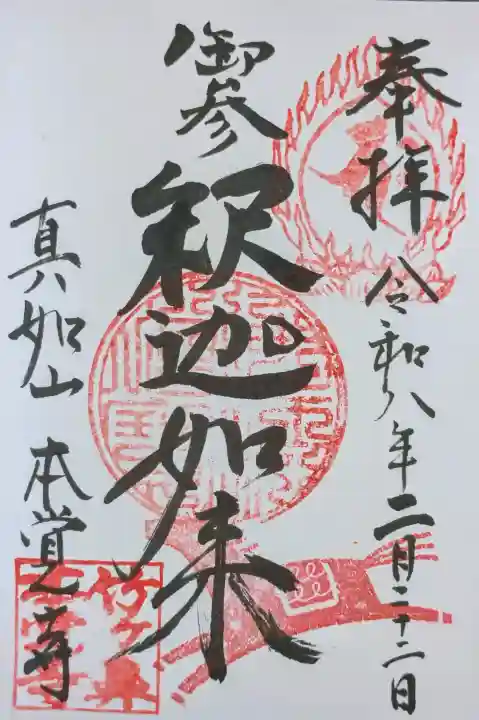 奉拝
令和八年二月二十二日
御参
釈迦如来
真如山 本覚寺